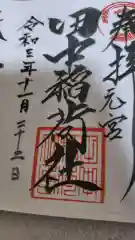 奉拝
元宮
田中稲荷社
令和三年十一月二十二日